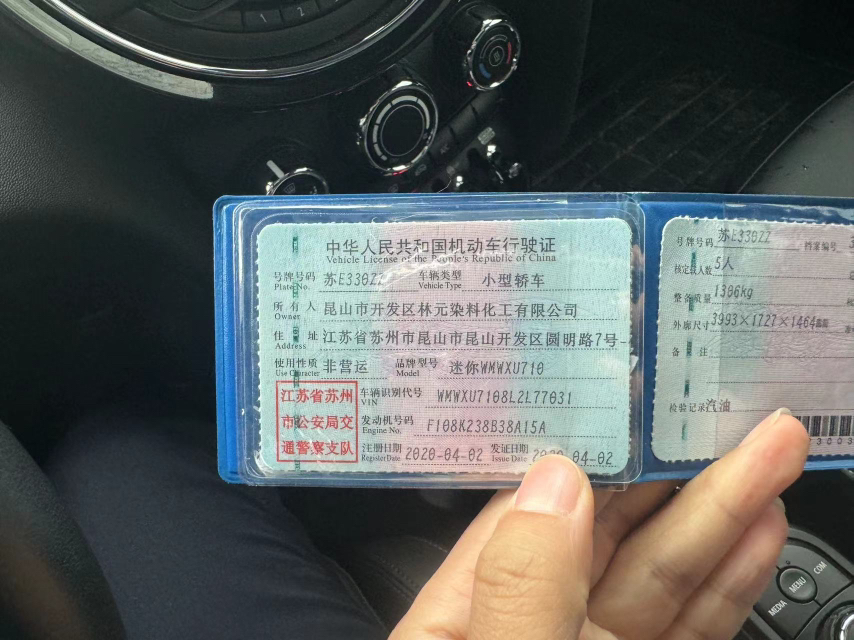 中华人民共和国机动车行驶证
Vehicle License of the People's Republic of China
号牌号码 苏E330ZZ 车辆类型 小型轿车
Plate No. Vehicle Type
所有人 昆山市开发区林元染料化工有限公司
Owner
住址 江苏省苏州市昆山市昆山开发区圆明路7号-
Address
使用性质 非营运 品牌型号 迷你WMWXU710
Use Character Model
江苏省苏州
市公安局交
通警察支队
车辆识别代号 WMWXU7108L2L77031
VIN
发动机号码 F108K238B38A15A
Engine No.
注册日期 2020-04-02 发证日期 2020-04-02
Register Date Issue Date
号牌号码 苏E330ZZ 档案编号
核定载人数 5人
整备质量 1386kg
外廓尺寸 3993×1727×1464mm
备注
检验记录 汽油
MENU
COM
MEDIA
1 2